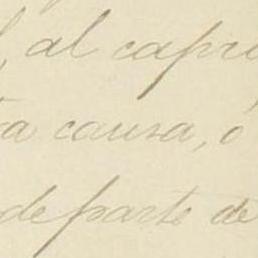 , al capri
a causa, ó
de parte de